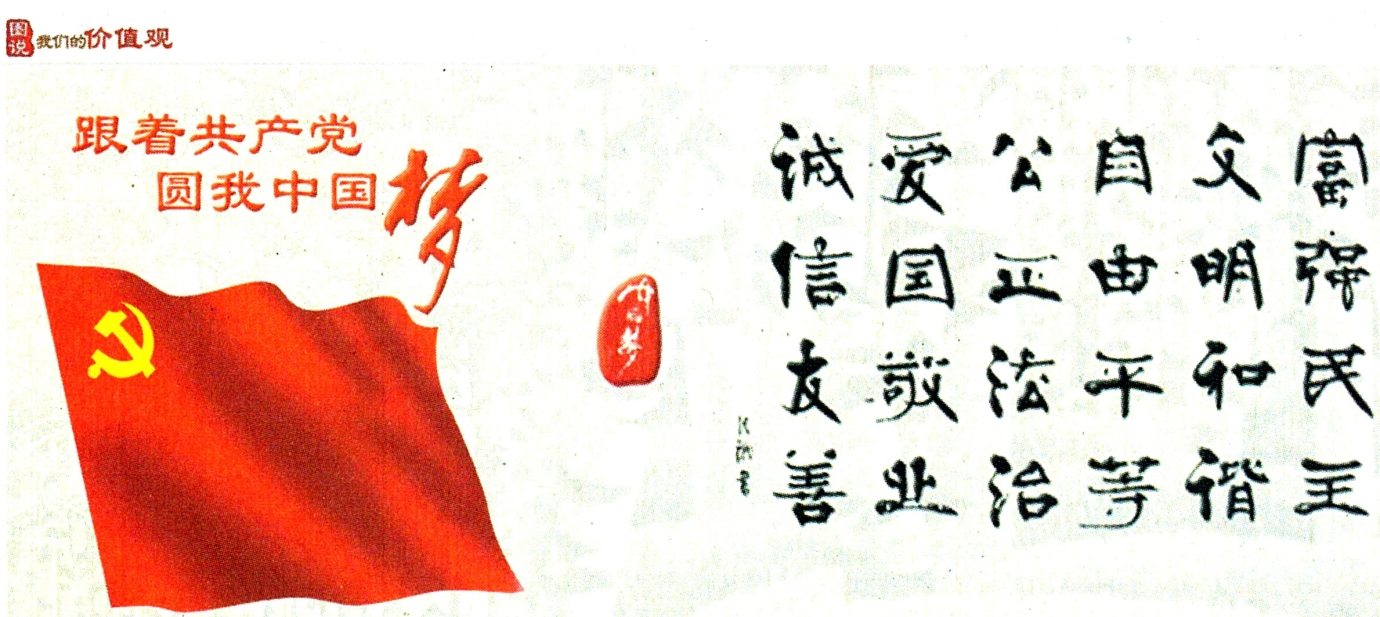 图说我们的价值观
跟着共产党
圆我中国梦
中国梦
富强民主
文明和谐
自由平等
公正法治
爱国敬业
诚信友善